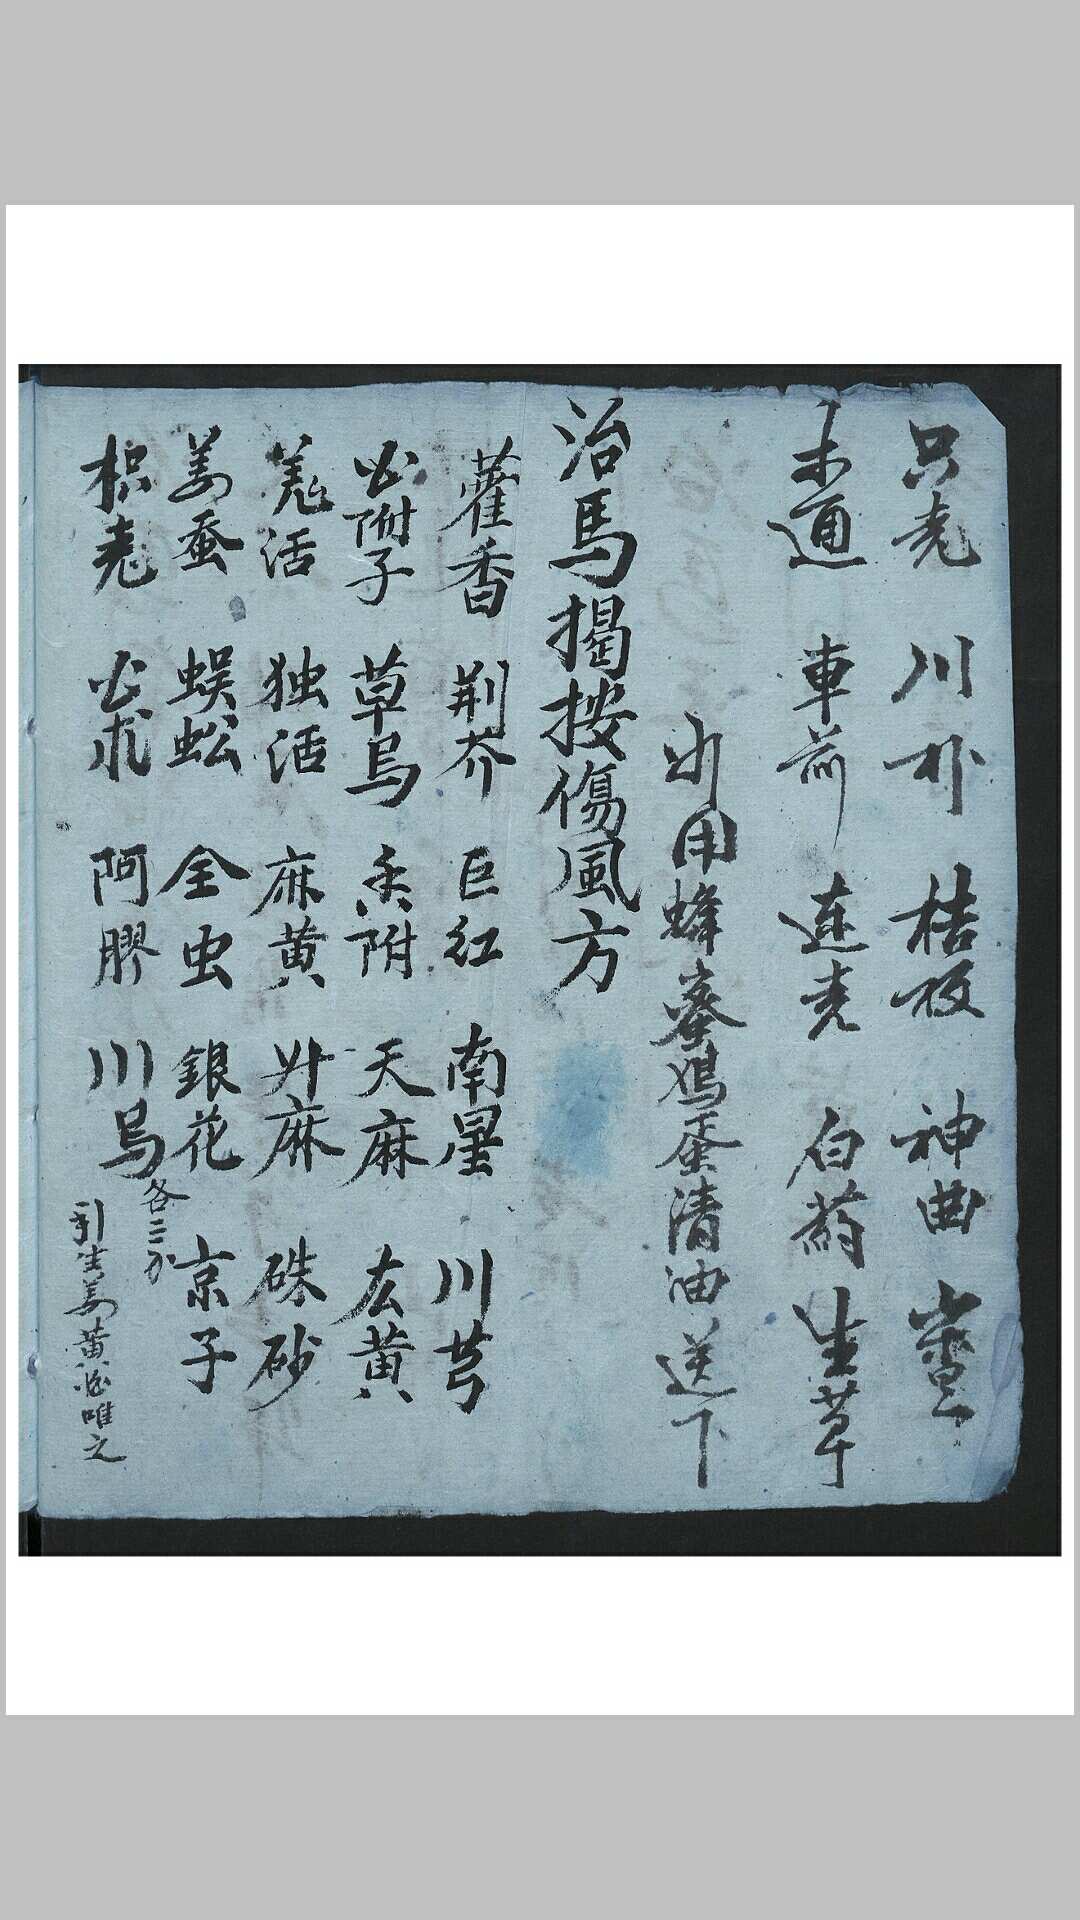 只壳 川朴 桔皮 神曲 山查
木通 車前 連壳 白芍 生草
引用蜂蜜鸡蛋清油送下
治馬揭按傷風方
藿香 荆芥 巨红 南星 川芎
白附子 草烏 香附 天麻 大黄
羌活 独活 麻黄 升麻 硃砂
姜蚕 蜈蚣 全虫 銀花 京子
枳壳 白术 阿膠 川烏 各三分
引生姜黄酒唯之